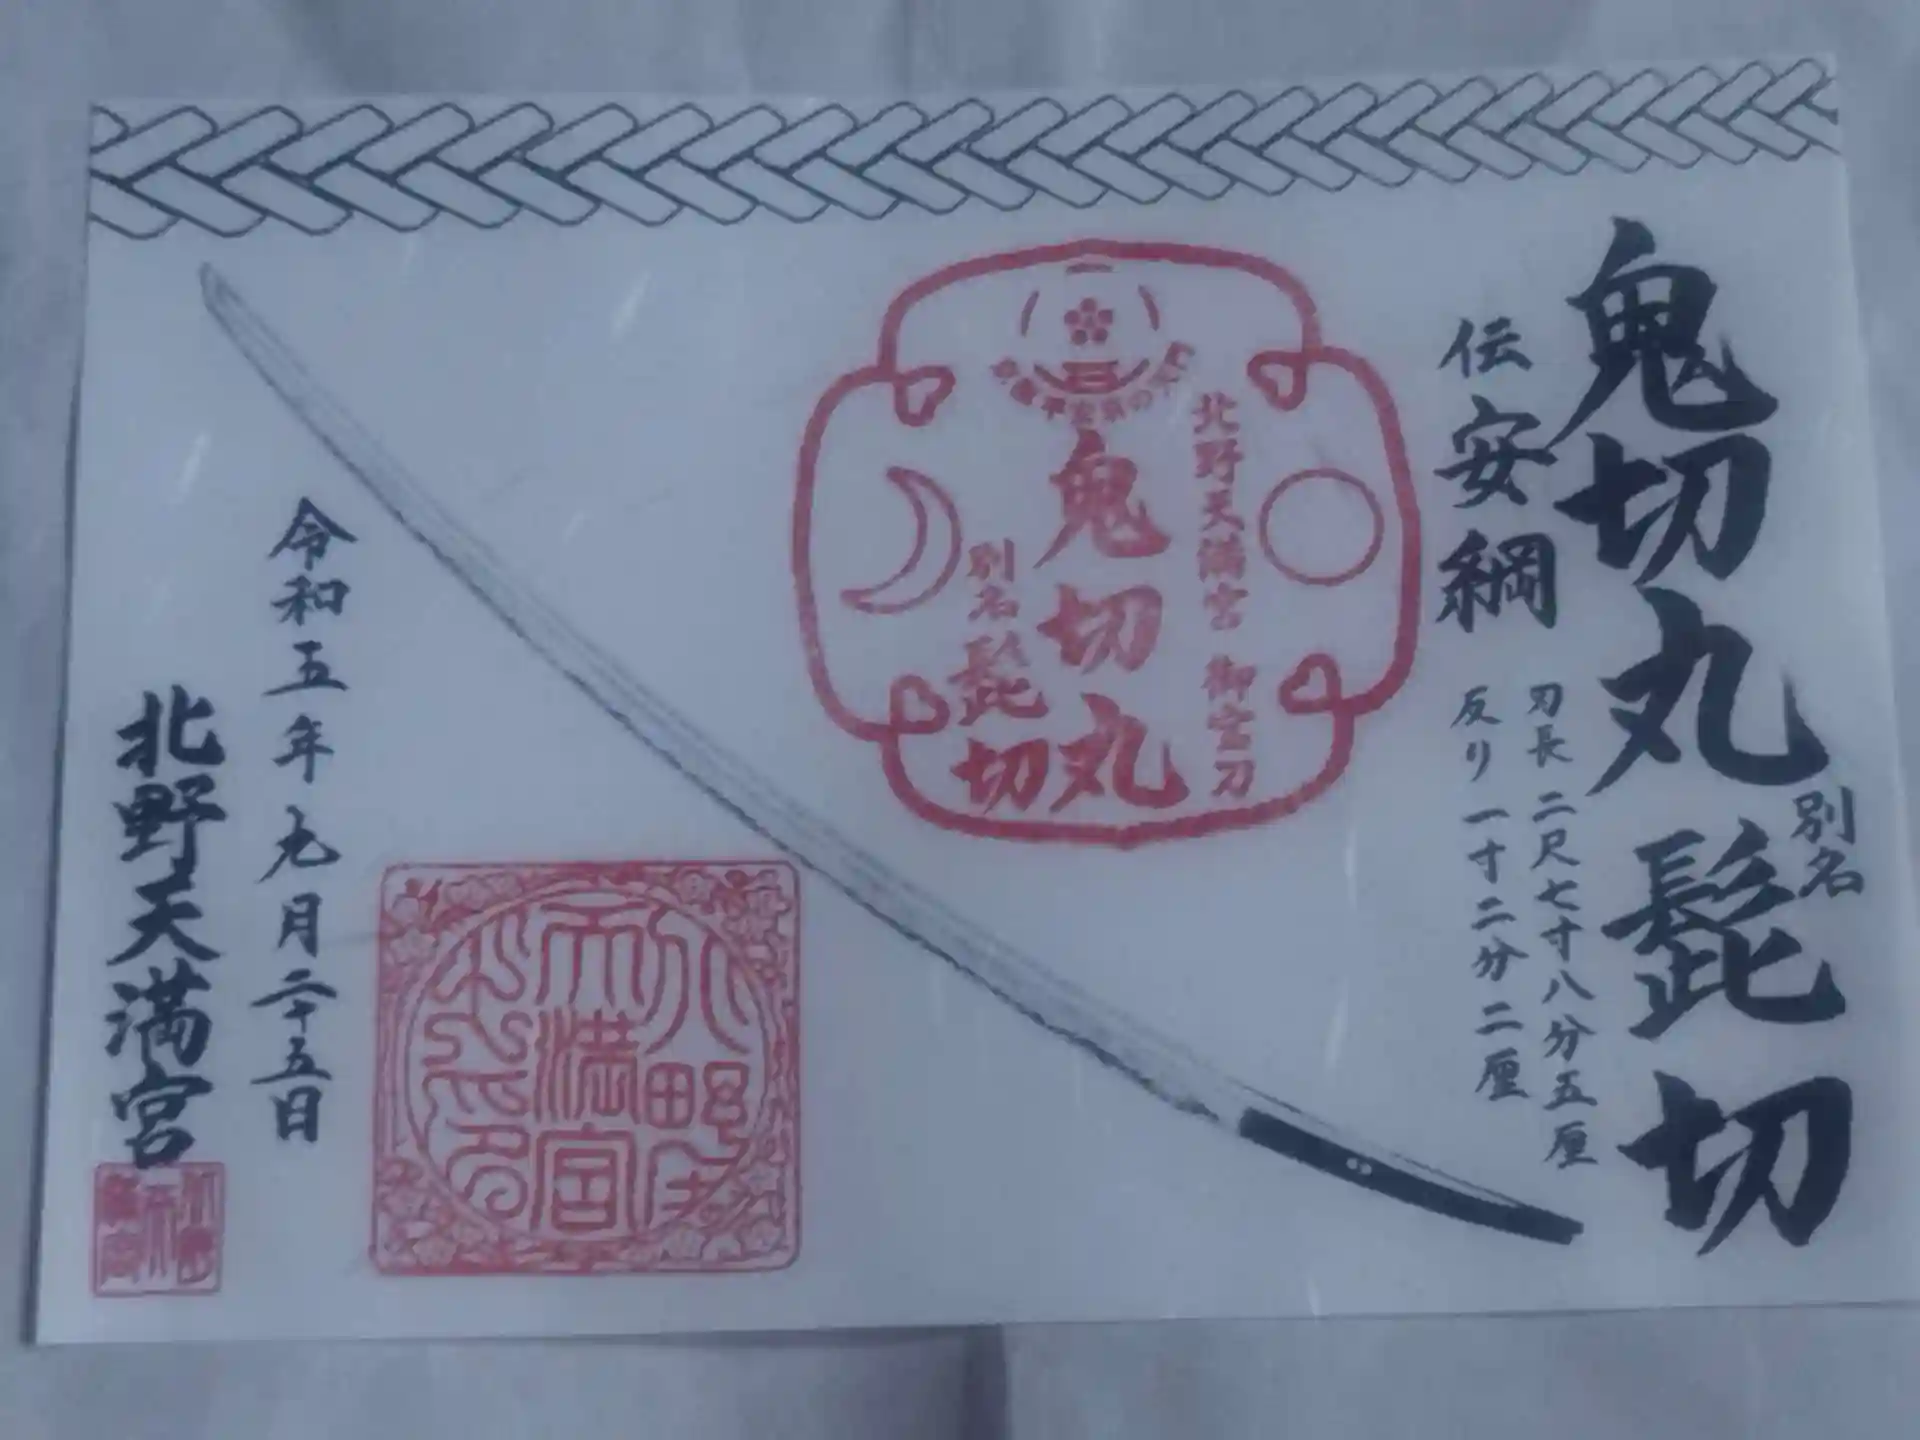 鬼切丸
別名
髭切
伝安綱
刃長 二尺七寸八分五厘
反り 一寸二分二厘
北野天満宮 御宝刀
鬼切丸
別名
髭切
令和五年九月二十五日
北野天満宮